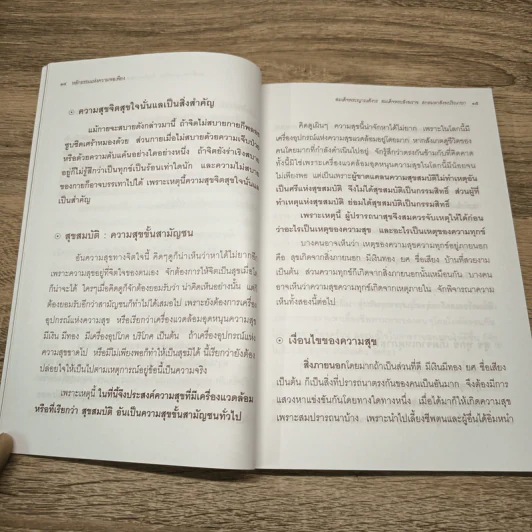 ๑๘ หลักธรรมแห่งความพอเพียง
๏ ความสุขจิตสุขใจนั่นแลเป็นสิ่งสำคัญ
แม้กายจะสบายดังกล่าวมานี้ ถ้าจิตไม่สบายกายก็พลอย
ซูบซีดเศร้าหมองด้วย ส่วนกายเมื่อไม่สบายด้วยความเจ็บป่วย
หรือด้วยความคับแค้นอย่างใดอย่างหนึ่ง ถ้าจิตยังร่าเริงสบาย
อยู่ก็ไม่รู้สึกว่าเป็นทุกข์เป็นร้อนเท่าใดนัก และความไม่สบาย
ของกายก็อาจบรรเทาไปได้ เพราะเหตุนี้ความสุขจิตสุขใจนั่นแล
เป็นสำคัญ
๏ สุขสมบัติ : ความสุขขั้นสามัญชน
อันความสุขทางจิตใจนี้ คิดๆดูก็น่าเห็นว่าหาได้ไม่ยาก
เพราะความสุขอยู่ที่จิตใจของตนเอง จักต้องการให้จิตเป็นสุขเมื่อใด
ก็น่าจะได้ ใครๆเมื่อคิดดูก็จักต้องยอมรับว่า น่าคิดเห็นอย่างนั้น แต่
ต้องยอมรับอีกว่าสามัญชนก็ทำไม่ได้เสมอไป เพราะยังต้องการเครื่อง
อุปกรณ์แห่งความสุข หรือเรียกว่าเครื่องแวดล้อมอุดหนุนความสุข
มีเงิน มีทอง มีเครื่องอุปโภค บริโภค เป็นต้น ถ้าเครื่องอุปกรณ์แห่ง
ความสุขขาดไป หรือมีไม่เพียงพอก็ทำให้เป็นสุขมิได้ นี้เรียกว่ายังต้อง
ปล่อยใจให้เป็นไปตามเหตุการณ์อยู่ข้อนี้เป็นความจริง
เพราะเหตุนี้ ในที่นี้จึงประสงค์ความสุขที่มีเครื่องแวดล้อม
หรือที่เรียกว่า สุขสมบัติ อันเป็นความสุขขั้นสามัญชนทั่วไป
สมเด็จพระญาณสังวร สมเด็จพระสังฆราช สกลมหาสังฆปริณายก ๑๙
คิดดูเผินๆ ความสุขนี้น่าจักหาได้ไม่ยาก เพราะในโลกนี้มี
เครื่องอุปกรณ์แห่งความสุขแวดล้อมอยู่โดยมาก หากสังเกตดูชีวิตของ
คนโดยมากที่กำลังดำเนินไปอยู่ จักรู้สึกว่าตรงกันข้ามกับที่คิดคาด
ทั้งนี้มิใช่เพราะเครื่องแวดล้อมอุดหนุนความสุขในโลกนี้มีน้อยจน
ไม่เพียงพอ แต่เป็นเพราะผู้ขาดแคลนความสุขสมบัติไม่ทำเหตุอัน
เป็นศรีแห่งสุขสมบัติ จึงไม่ได้สุขสมบัติเป็นกรรมสิทธิ์ ส่วนผู้ที่
ทำเหตุแห่งสุขสมบัติ ย่อมได้สุขสมบัติเป็นกรรมสิทธิ์
เพราะเหตุนี้ ผู้ปรารถนาสุขจึงสมควรจับเหตุให้ได้ก่อน
ว่าอะไรเป็นเหตุของความสุข และอะไรเป็นเหตุของความทุกข์
บางคนอาจเห็นว่า เหตุของความสุขความทุกข์อยู่ภายนอก
คือ สุขเกิดจากสิ่งภายนอก มีเงินทอง ยศ ชื่อเสียง บ้านที่สวยงาม
เป็นต้น ส่วนความทุกข์ก็เกิดจากสิ่งภายนอกนั้นเหมือนกัน บางคน
อาจเห็นว่าความสุขความทุกข์เกิดจากเหตุภายใน จักพิจารณาความ
เห็นทั้งสองนี้ต่อไป
๏ เงื่อนไขของความสุข
สิ่งภายนอกโดยมากถ้าเป็นส่วนที่ดี มีเงินมีทอง ยศ ชื่อเสียง
เป็นต้น ก็เป็นสิ่งที่ปรารถนาตรงกันของคนเป็นอันมาก จึงต้องมีการ
แสวงหาแข่งขันกันโดยทางใดทางหนึ่ง เมื่อได้มาก็ให้เกิดความสุข
เพราะสมปรารถนาบ้าง เพราะนำไปเลี้ยงชีพตนและผู้อื่นให้อิ่มหนำ